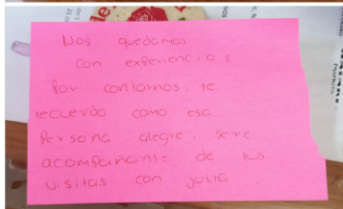 Nos quedamos
con experiencias
Por contarnos. te
recuerdo como esa
Persona alegre. sere
acompañante de tus
visitas con julia.